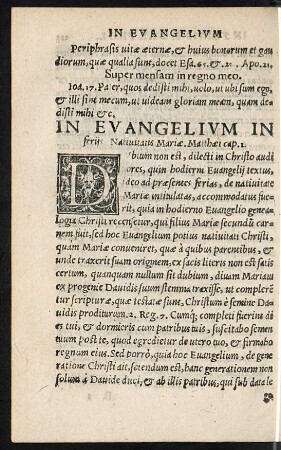 IN EVANGELIVM
Periphrasis uitæ æternæ, & huius bonorum et gau
diorum, quæ qualia sunt, docet Esa. 65. & 21. Apo. 21.
Super mensam in regno meo.
Ioa. 17. Pater, quos dedisti mihi, uolo, ut ubi sum ego,
& illi sint mecum, ut uideam gloriam meam, quam de
disti mihi &c.
IN EVANGELIVM IN
ferijs Natiuitatis Mariæ. Matthæi cap. 1.
DVbium non est, dilecti in Christo audi
ores, quin hodierni Euangelij textus,
ideo ad præsentes ferias, de natiuitate
Mariæ intitulatas, accommodatus fu
erit, quia in hodierno Euangelio genea-
logia Christi recensetur, qui filius Mariæ secundū car
nem fuit, sed hoc Euangelium potius natiuitati Christi,
quam Mariæ conueniret, quæ à quibus parentibus, &
unde traxerit suam originem, ex sacris literis non est satis
certum, quanquam nullum sit dubium, diuam Mariam
ex progenie Dauidis suum stemma traxisse, ut complerē
tur scripturæ, quæ testatæ sunt, Christum è semine Da
uidis proditurum. 2. Reg. 7. Cumq; completi fuerint di
es tui, & dormieris cum patribus tuis, suscitabo semen
tuum post te, quod egredietur de utero tuo, & firmabo
regnum eius. Sed porrò, quia hoc Euangelium, de gene
ratione Christi ait, sciendum est, hanc generationem non
solum à Dauide duci, & ab illis patribus, qui sub data le